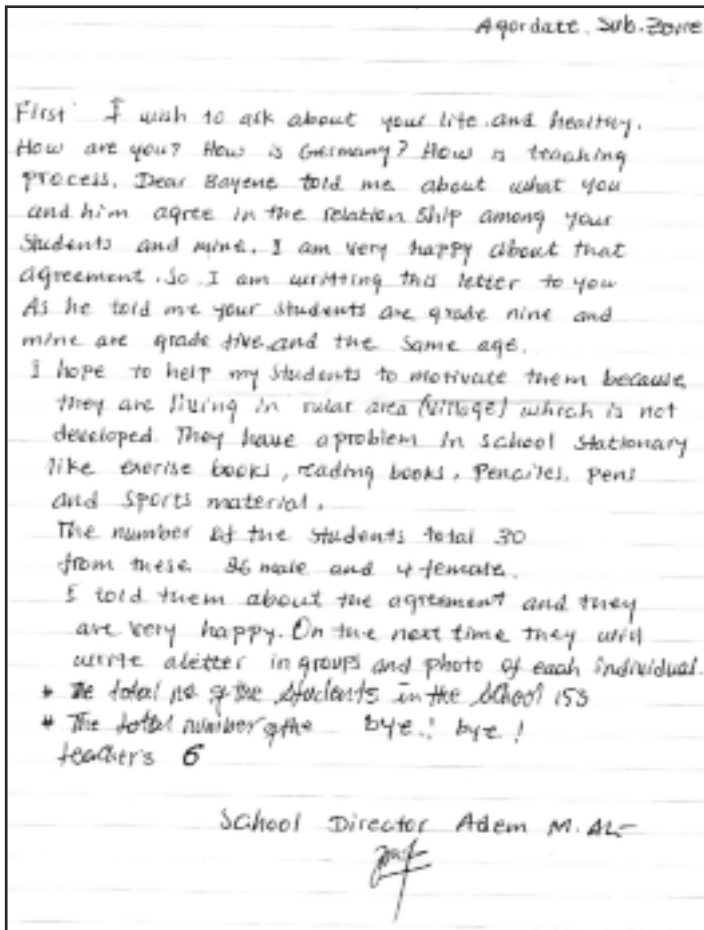 Agordate Sub-Zone
First I wish to ask about your life and healthy.
How are you? How is Germany? How is teaching
process. Dear Bayene told me about what you
and him agree in the relation ship among your
students and mine. I am very happy about that
agreement. So I am writting this letter to you
As he told me your students are grade nine and
mine are grade five and the same age.
I hope to help my students to motivate them because
they are living in rular area (village) which is not
developed. They have aproblem in school stationary
like exerise books, reading books, Penciles, pens
and sports material.
The number of the students total 30
from these 26 male and 4 female.
I told them about the agreement and they
are very happy. On the next time they will
write aletter in groups and photo of each individual.
* The total no of the students in the school 153
* The total number of the bye! bye!
teachers 6
School Director Adem M. Ali